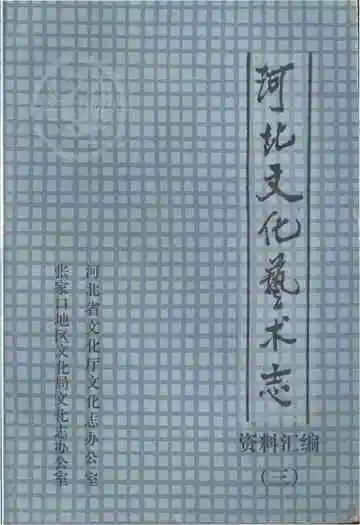 河北文化藝术志
资料汇编
(三)
河北省文化厅文化志办公室
张家口地区文化局文化志办公室